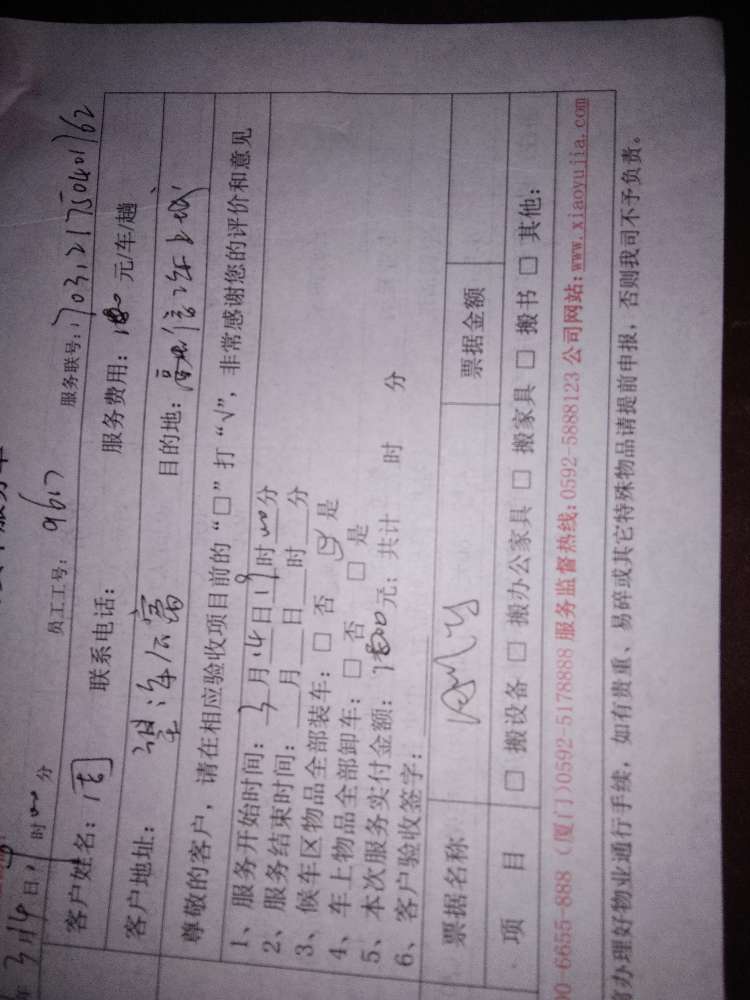 3月14日 时00分
员工工号: 9617 服务联号: 1703121750401762
客户姓名: 周 联系电话: 服务费用: 元/车/趟
客户地址: 望海公寓 目的地:
尊敬的客户,请在相应验收项目前的“□”打“√”,非常感谢您的评价和意见
1、服务开始时间: 3月14日19时00分
2、服务结束时间: 月 日 时 分
3、候车区物品全部装车: □ 否 ☑ 是
4、车上物品全部卸车: □ 否 □ 是
5、本次服务实付金额: 元; 共计 时 分
6、客户验收签字:
票据名称 票据金额
项 目 □ 搬设备 □ 搬办公家具 □ 搬家具 □ 搬书 □ 其他:
00-6655-888 (厦门)0592-5178888 服务监督热线:0592-5888123 公司网站:www.xiaoyujia.com
办理好物业通行手续,如有贵重、易碎或其它特殊物品请提前申报,否则我司不予负责。